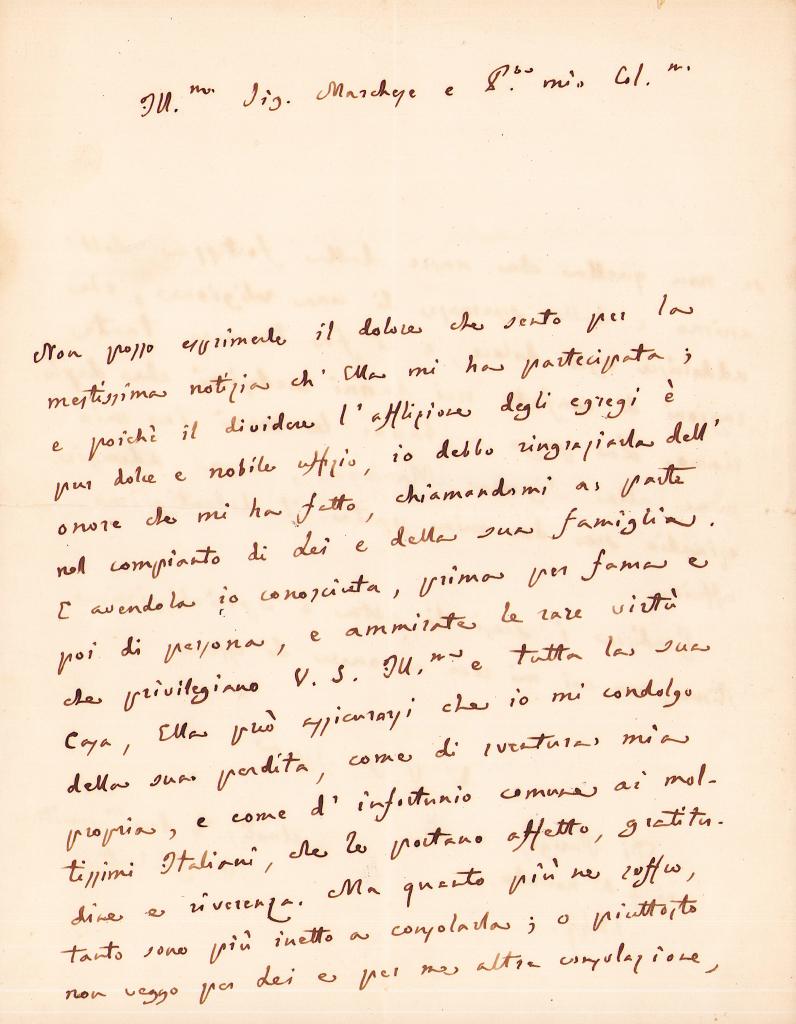 Ill.mo Sig. Marchese e P.ne mio Col.mo
Non posso esprimerle il dolore che sento per la
mestissima notizia ch' Ella mi ha partecipata;
e poichè il dividere l'afflizione degli egregi è
pur dolce e nobile uffizio, io debbo ringraziarla dell'
onore che mi ha fatto, chiamandomi a parte
nel compianto di Lei e della sua famiglia.
E avendola io conosciuta, prima per fama e
poi di persona, e ammirate le rare virtù
che privilegiano V. S. Ill.ma e tutta la sua
Casa, Ella può assicurarsi che io mi condolgo
della sua perdita, come di sventura mia
propria, e come d' infortunio comune ai mol-
tissimi Italiani, che le portano affetto, gratitu-
dine e riverenza. Ma quanto più ne soffro,
tanto sono più inetto a consolarla; o piuttosto
non veggo per Lei e per me altra consolazione,